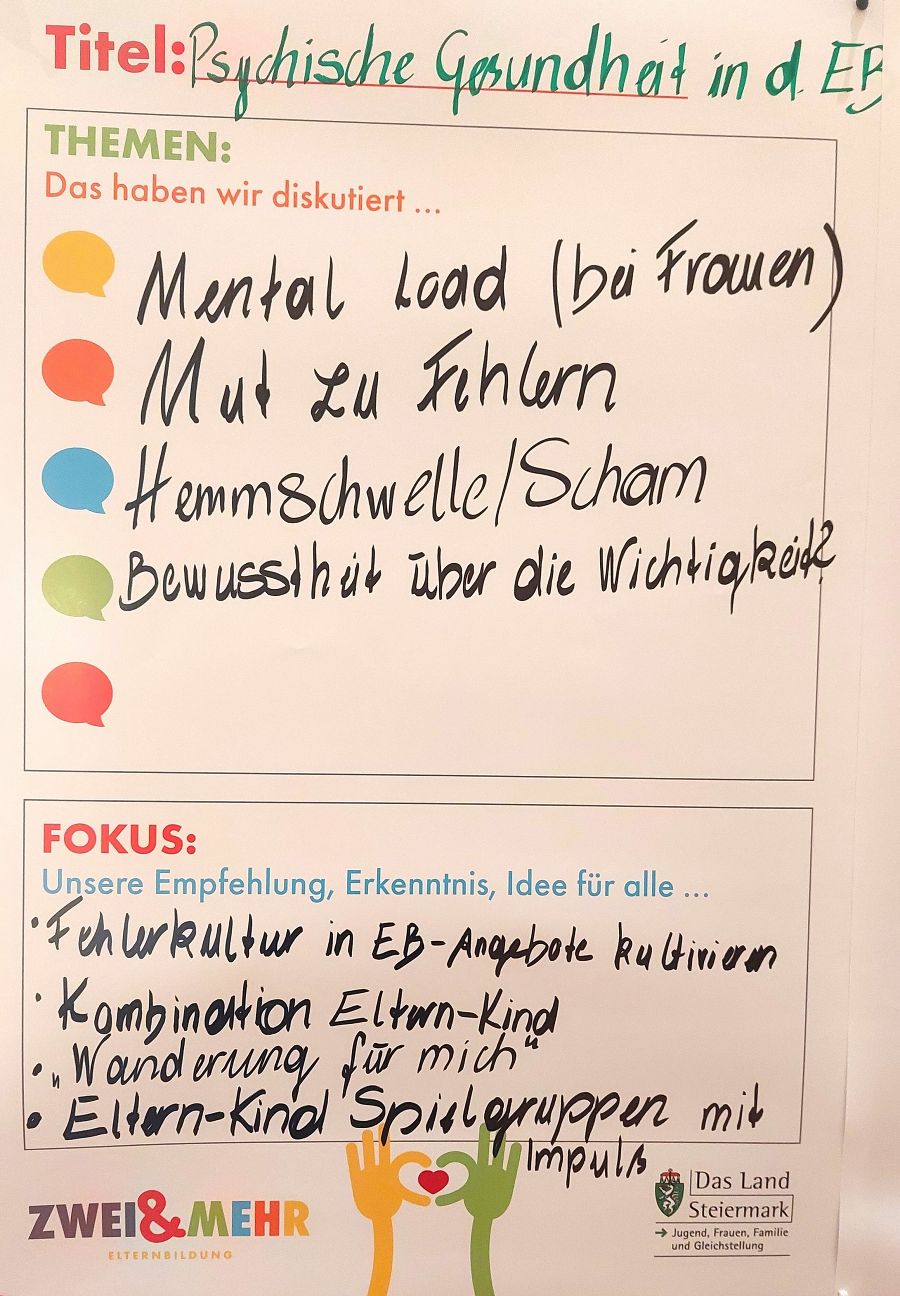 Titel: Psychische Gesundheit in d. EB
THEMEN:
Das haben wir diskutiert ...
Mental Load (bei Frauen)
Mut zu Fehlern
Hemmschwelle/Scham
Bewusstheit über die Wichtigkeit?
FOKUS:
Unsere Empfehlung, Erkenntnis, Idee für alle ...
· Fehlerkultur in EB-Angebote kultivieren
· Kombination Eltern-Kind
• „Wanderung für mich“
• Eltern-Kind Spielgruppen mit
Impuls
ZWEI&MEHR
ELTERNBILDUNG
Das Land
Steiermark
→ Jugend, Frauen, Familie
und Gleichstellung